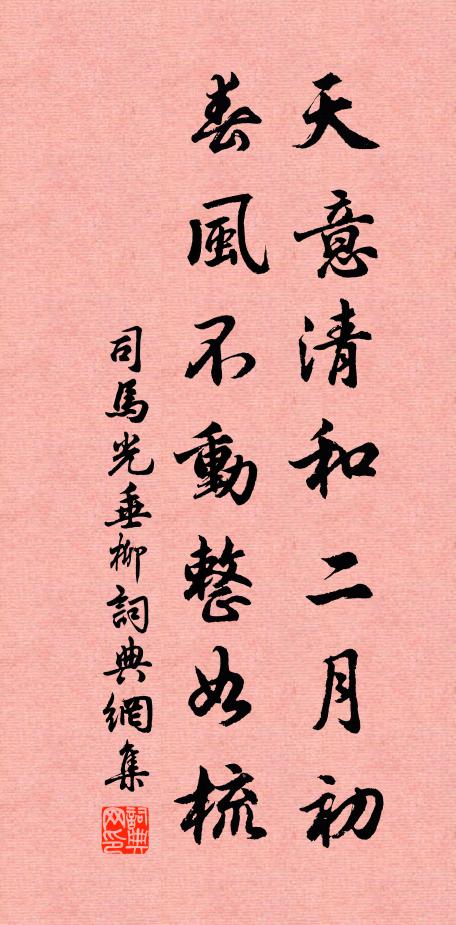 天意清和二月初
春風不動整如梳
司馬光垂柳詞典網集
詞典网印